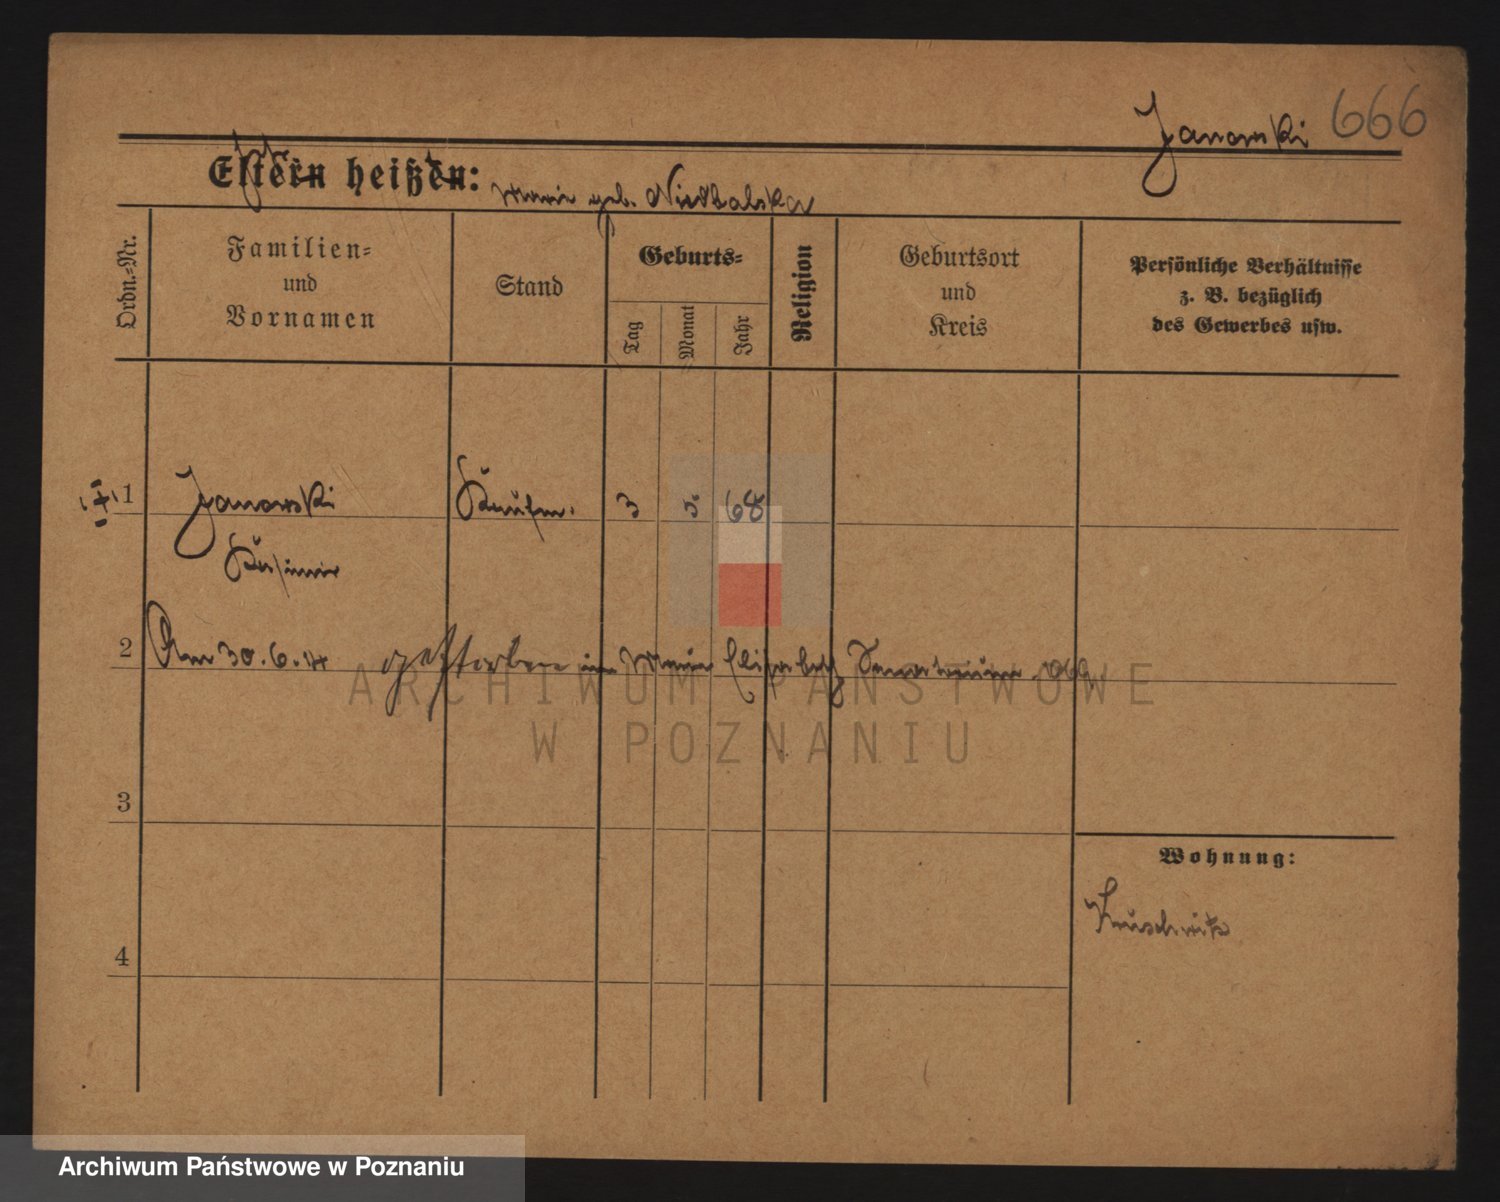 Janowski 666
Eltern heißen:
Marie geb. Niedbalska
Ordn.=Nr.
Familien=
und
Vornamen
Stand
Geburts=
Tag
Monat
Jahr
Religion
Geburtsort
und
Kreis
Persönliche Verhältnisse
z. B. bezüglich
des Gewerbes usw.
1 Janowski Kaufm. 3 5 68
Kasimir
2 Am 30.6.14 gestorben im Marien Elisabeth Sanatorium
ARCHIWUM PAŃSTWOWE
W POZNANIU
3
Wohnung:
Kuschwitz
4
Archiwum Państwowe w Poznaniu